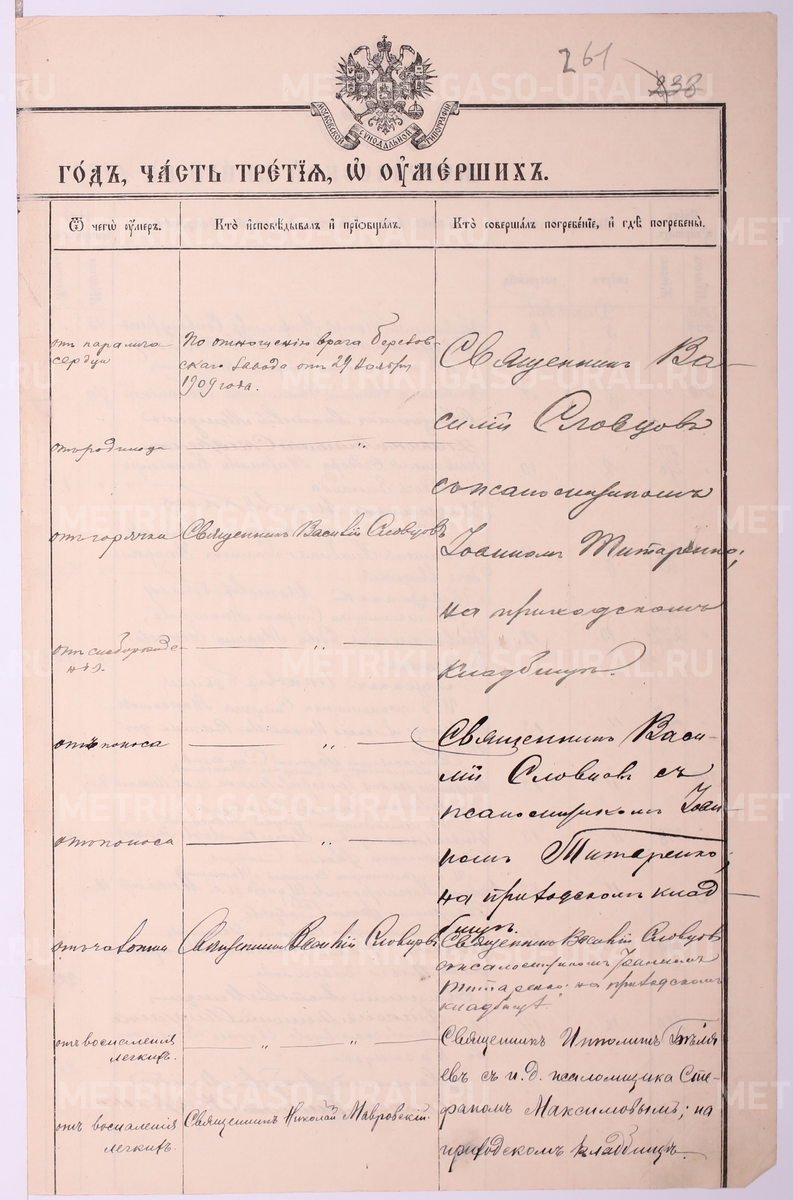 261
238
МОСКОВСКОЙ СѴНОДАЛЬНОЙ ТИПОГРАФІИ
ГО́ДЪ, ЧА́СТЬ ТРЕ́ТІЯ, Ѡ ОУ҆МЕ́РШИХЪ.
Ѿ чегѡ̀ оу҆́меръ.
Кто̀ и҆сповѣ́дывалъ и҆ прїѡбща́лъ.
Кто̀ соверша́лъ погребе́нїе, и҆ гдѣ̀ погребены̀.
отъ паралича
сердца
По отношенію врача Березов-
скаго завода отъ 29 Ноября
1909 года.
Священникъ Ва-
силій Словцовъ
отъ родимца
"
съ псаломщикомъ
отъ горячки
Священникъ Василій Словцовъ
Іоанномъ Титаренко;
на приходскомъ
отъ слаборожде-
нія
"
кладбищѣ.
отъ поноса
"
Священникъ Васи-
лій Словцовъ съ
псаломщикомъ Іоан-
номъ Титаренко;
отъ поноса
"
на приходскомъ клад-
бищѣ.
отъ чахотки
Священникъ Василій Словцовъ
Священникъ Василій Словцовъ
съ псаломщикомъ Іоанномъ
Титаренко; на приходскомъ
кладбищѣ.
отъ воспаленія
легкихъ.
" "
Священникъ Ипполитъ Бѣля-
евъ съ и. д. псаломщика Сте-
фаномъ Максимовымъ; на
приходскомъ кладбищѣ.
отъ воспаленія
легкихъ.
Священникъ Николай Мавровскій.
METRIKI.GASO-URAL.RU